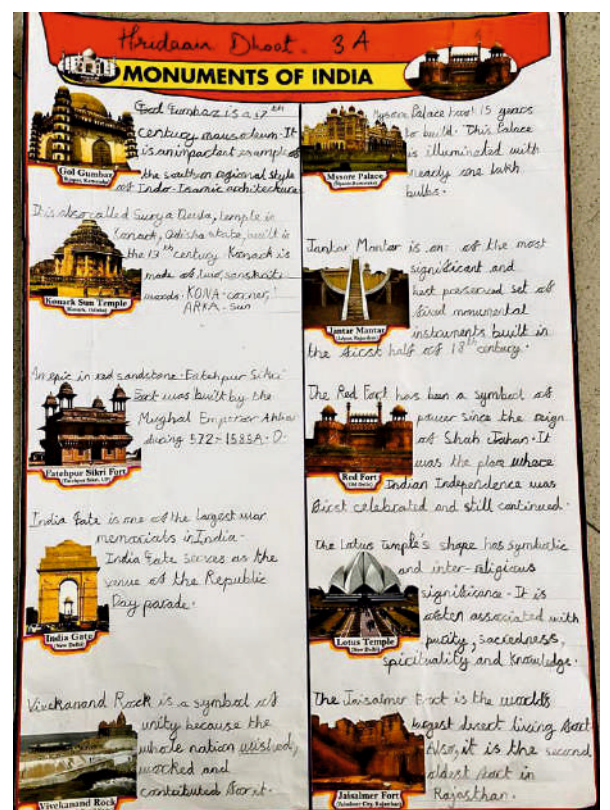 Hridaan Dhoot. 3 A
MONUMENTS OF INDIA
Gol Gumbaz is a 17th
century mausoleum. It
is an impactant example of
the southern regional style
of Indo-Isamic architecture
Gol Gumbaz
(Bijapur, Karnataka)
It is also called Surya Deula, temple in
Konark, Odisha state, built in
the 13th century. Konark is
made of two, sanskrit
words. KONA-corner,
ARKA-sun
Konark Sun Temple
(Konark, Odisha)
An epic in red sandstone. Fatehpur Sikri
Fort was built by the
Mughal Emperor Akbar
during 572-1585A.D.
Fatehpur Sikri Fort
(Fatehpur Sikri, UP)
India Gate is one of the largest war
memorials in India.
India Gate serves as the
venue of the Republic
Day parade.
India Gate
(New Delhi)
Vivekanand Rock is a symbol of
unity because the
whole nation wished,
worked and
contributed for it.
Vivekanand Rock
Mysore Palace took 15 years
to build. This Palace
is illuminated with
nearly one lakh
bulbs.
Mysore Palace
(Mysore, Karnataka)
Jantar Mantar is on: of the most
significant and
best preserved set of
fixed monumental
instruments built in
the first half of 18th century.
Jantar Mantar
(Jaipur, Rajasthan)
The Red Fort has been a symbol of
power since the reign
of Shah Jahan. It
was the place where
Indian Independence was
first celebrated and still continued.
Red Fort
(Old Delhi)
The Lotus Temple's shape has symbolic
and inter-religious
significance. It is
often associated with
purity, sacredness,
spirituality and Knowledge.
Lotus Temple
(New Delhi)
The Jaisalmer Fort is the world's
largest desert living fort
Also, it is the second
oldest fort in
Rajasthan.
Jaisalmer Fort
(Jaisalmer City, Rajasthan)